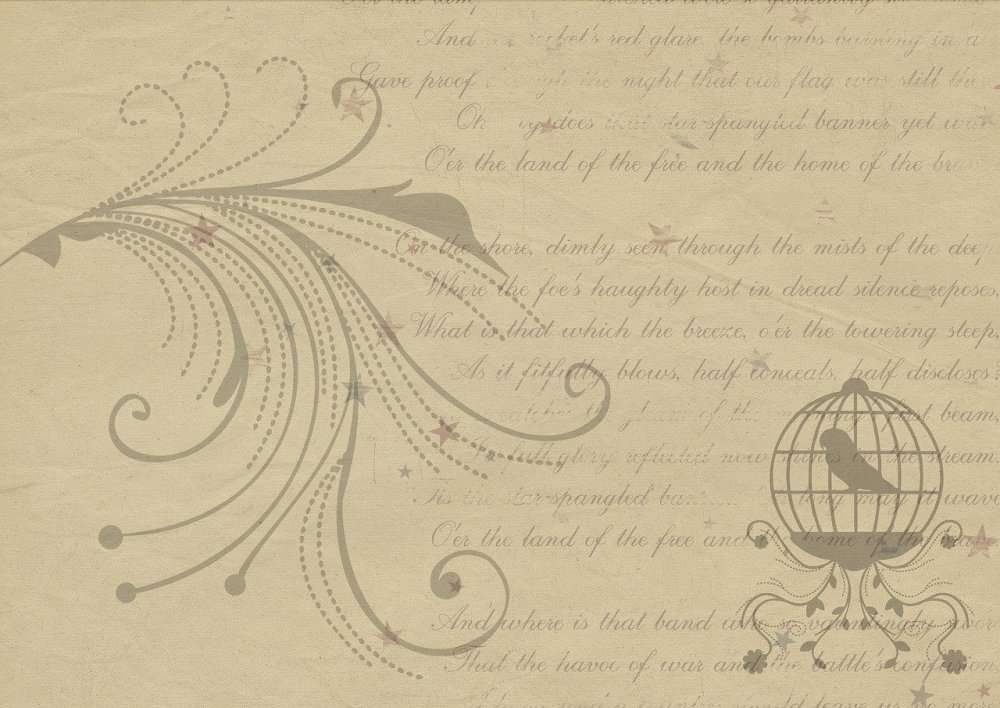 O'er the ramp
And rocket's red glare, the bombs bursting in a
Gave proof through the night that our flag was still the
Oh does that star-spangled banner yet wa
O'er the land of the free and the home of the bra
On the shore, dimly seen through the mists of the deep
Where the foe's haughty host in dread silence reposes,
What is that which the breeze, o'er the towering steep,
As it fitfully blows, half conceals, half discloses?
catches the gleam of the first beam,
In full glory reflected now shines in the stream.
'Tis the star-spangled long may it wave
O'er the land of the free and the home of the
And where is that band who so vauntingly swor
That the havoc of war and the battle's confusion
leave us no more